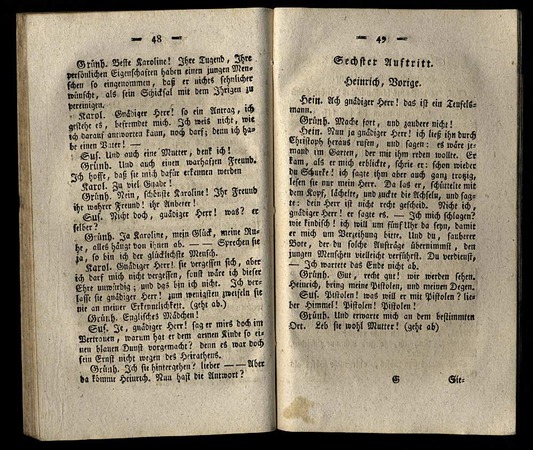 — 48 —
Grünh. Beste Karoline! Ihre Tugend, Ihre
persönlichen Eigenschaften haben einen jungen Men-
schen so eingenommen, daß er nichts sehnlicher
wünscht, als sein Schicksal mit dem Ihrigen zu
vereinigen.
Karol. Gnädiger Herr! so ein Antrag, ich
gestehe es, befremdet mich. Ich weis nicht, wie
ich darauf antworten kann, noch darf; denn ich ha-
be einen Vater! —
Sus. Und auch eine Mutter, denk ich!
Grünh. Und auch einen warhaften Freund.
Ich hoffe, daß sie mich dafür erkennen werden
Karol. Zu viel Gnade!
Grünh. Nein, schönste Karoline! Ihr Freund
ihr wahrer Freund! ihr Anbeter!
Sus. Nicht doch, gnädiger Herr! was? er
selber?
Grünh. Ja Karoline, mein Glück, meine Ru-
he, alles hängt von ihnen ab. — — Sprechen sie
ja, so bin ich der glücklichste Mensch.
Karol. Gnädiger Herr! sie vergessen sich, aber
ich darf mich nicht vergessen, sonst wäre ich dieser
Ehre unwürdig; und das bin ich nicht. Ich ver-
lasse sie gnädiger Herr! zum wenigsten zweifeln sie
nie an meiner Erkenntlichkeit. (geht ab.)
Grünh. Englisches Mädchen!
Sus. Je, gnädiger Herr! sag er mirs doch im
Vertrauen, warum hat er dem armen Kinde so ei-
nen blauen Dunst vorgemacht? denn es war doch
sein Ernst nicht wegen des Heirathens.
Grünh. Ich sie hintergehen? lieber — — Aber
da kömmt Heinrich. Nun hast die Antwort?
— 49 —
Sechster Auftritt.
Heinrich, Vorige.
Hein. Ach gnädiger Herr! das ist ein Teufels-
mann.
Grünh. Mache fort, und zaudere nicht!
Hein. Nun ja gnädiger Herr! ich ließ ihn durch
Christoph heraus rufen, und sagen: es wäre je-
mand im Garten, der mit ihm reden wollte. Er
kam, als er mich erblickte, schrie er: schon wieder
du Schurke! ich sagte ihm aber auch ganz trozig,
lesen sie nur mein Herr. Da las er, schüttelte mit
dem Kopf, lächelte, und zuckte die Achseln, und sag-
te: dein Herr ist nicht recht gescheid. Nicht ich,
gnädiger Herr! er sagte es. — Ich mich schlagen?
wie kindisch! ich will um fünf Uhr da seyn, damit
er mich um Verzeihung bitte. Und du, sauberer
Bote, der du solche Aufträge übernimmst, den
jungen Menschen vielleicht verführst. Du verdienst,
— Ich wartete das Ende nicht ab.
Grünh. Gut, recht gut! wir werden sehen.
Heinrich, bring meine Pistolen, und meinen Degen.
Sus. Pistolen! was will er mit Pistolen? lie-
ber Himmel! Pistolen! Pistolen!
Grünh. Und erwarte mich an dem bestimmten
Ort. Leb sie wohl Mutter! (geht ab)
G
Sie-